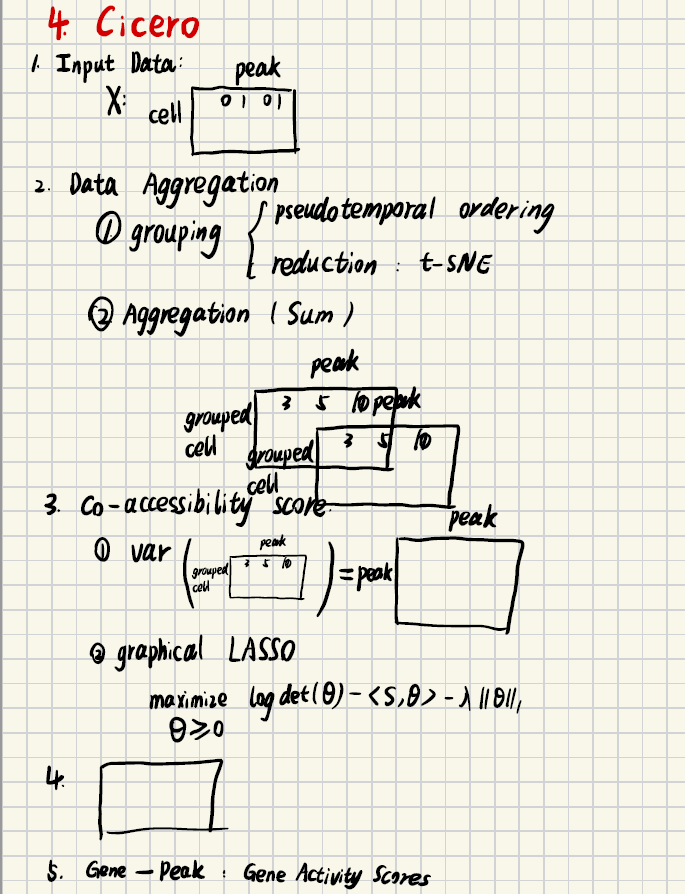 4. Cicero
1. Input Data:
peak
X: cell 0 1 0 1
2. Data Aggregation
① grouping { pseudotemporal ordering
reduction : t-SNE
② Aggregation ( Sum )
peak
grouped cell 3 5 10
peak
grouped cell 3 5 10
3. Co-accessibility score.
peak
① var ( grouped cell peak 3 5 10 ) = peak
② graphical LASSO
maximize log det(θ) - <S,θ> - λ ||θ||₁
θ ⩾ 0
4.
5. Gene - Peak : Gene Activity Scores